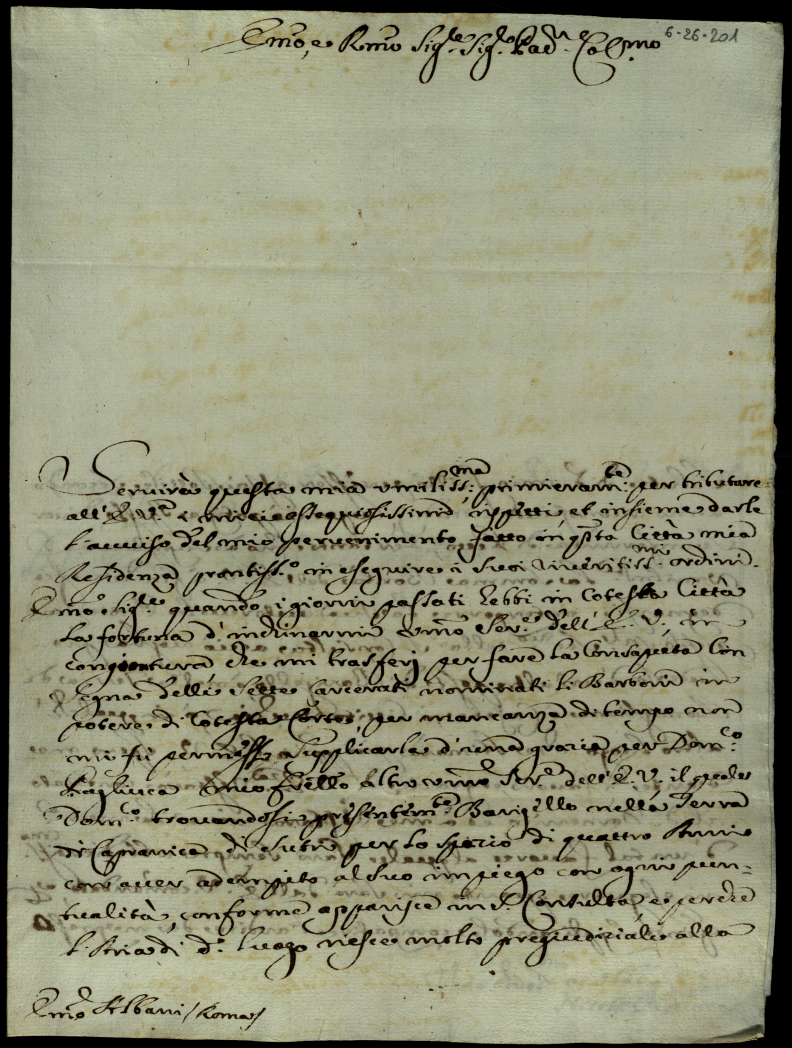 Em̃o, e Rm̃o Sig.re Sig.re Pad.ne Col.mo
6-26-201
Seruirà questa mia vmiliss:ma primieram:te per tributare
all' E. V.ra i miei ossequiosissimi rispetti, et insieme darle
l'auuiso del mio peruenimento fatto in q̃sta Città mia
Residenza prontiss.o in eseguire i suoi riueritiss:mi ordini.
Em̃o Sig.re quando i giorni passati hebbi in cotesta Città
la fortuna d'inchinarmi vmo Ser.re dell' E. V., in
congiontura che mi trasferij per fare la consaputa con
segna delli sette carcerati nominati li Barboni in
potere di cotesta Corte, per mancanza di tempo non
mi fù permesso supplicarla d'una grazia per Dom.co
mio frẽllo altro vmo Ser.re dell' E. V. il quale
Dom.co trouandosi presentem.te Barigello nella Terra
di Capranica di Sutri per lo spazio di quattro Anni
con auer adempito al suo impiego con ogni pun=
tualità, conforme apparisce in S. Consulta, e perche
l'Aria di d.o luogo riesce molto pregiudiziale alla
Em̃o Albani (Roma)